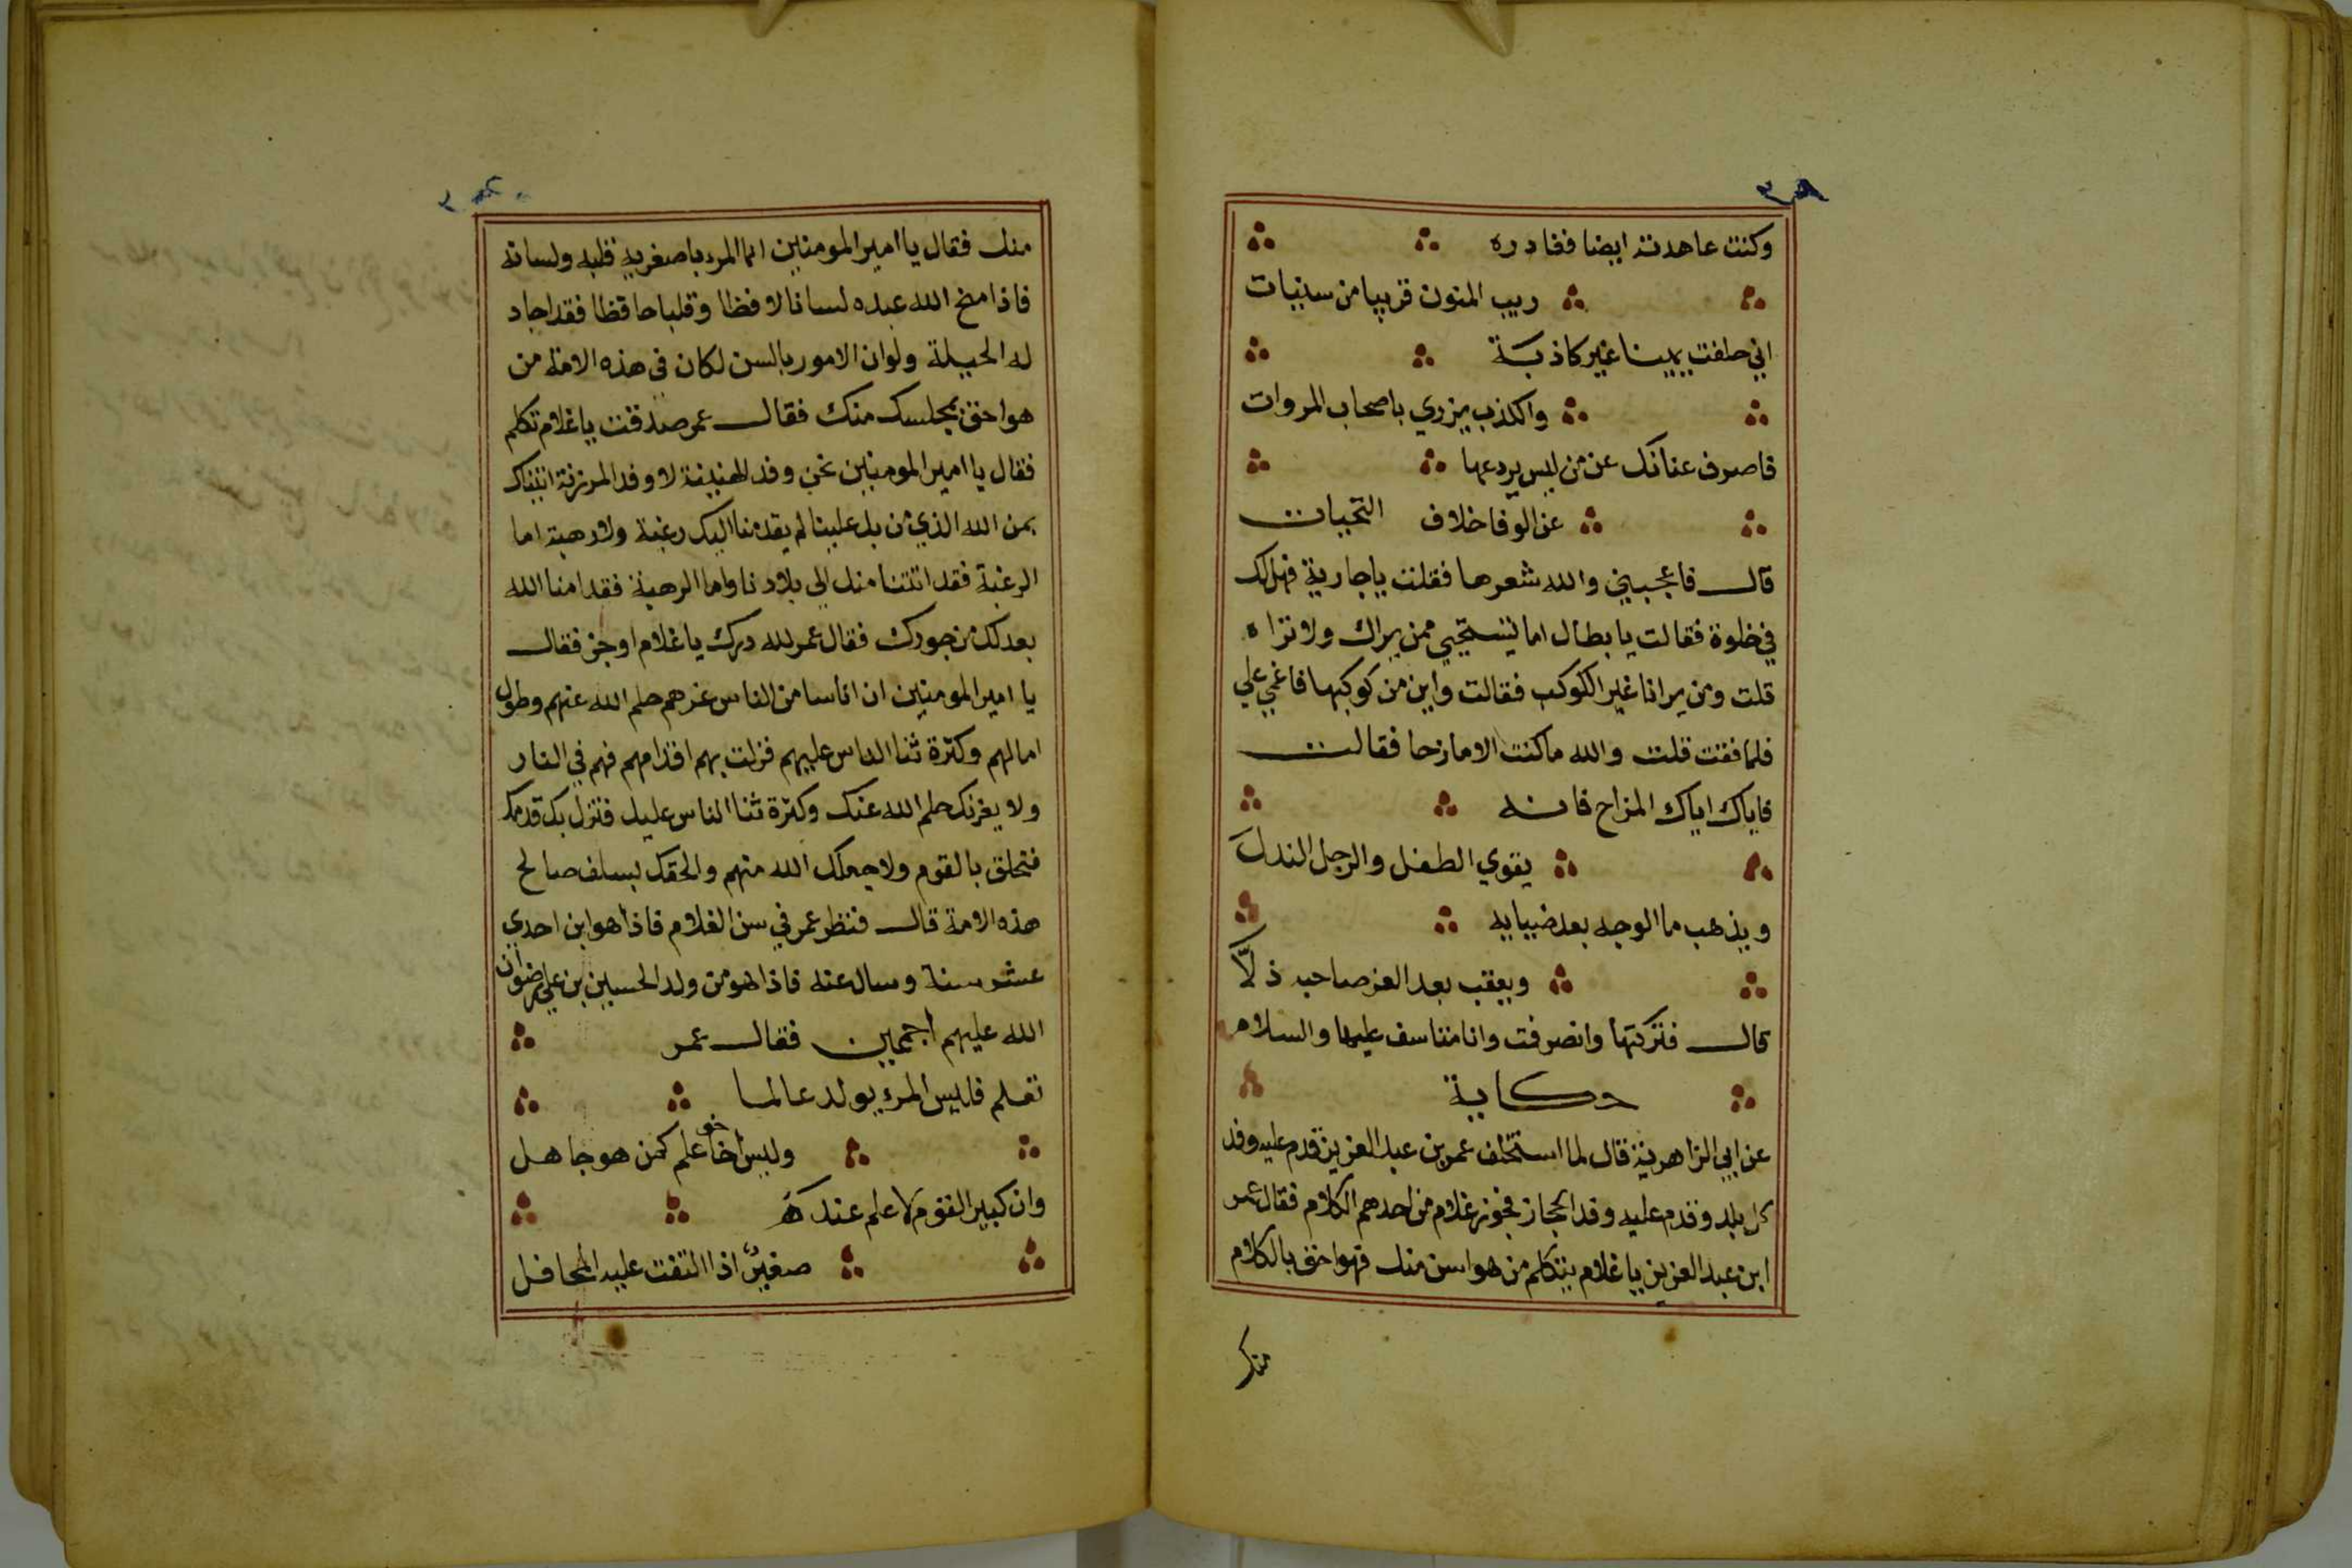 وكنت عاهدته ايضا فغادره
ريب المنون قريبا من سنيات
اني حلفت يمينا غير كاذبة
والكذب يزري باصحاب المروات
فاصرف عنانك عن من ليس يردعها
عن الوفا خلاف التحيات
قال فاعجبني والله شعرها فقلت يا جارية فهل لك
في خلوة فقالت يا بطال اما تستحيي ممن يراك ولا تراه
قلت ومن يرانا غير الكوكب فقالت واين من كوكبها فاغمي علي
فلما فقت قلت والله ما كنت الا مازحا فقالت
فاياك اياك المزاح فانه
يقوي الطفل والرجل الندل
ويذهب ما الوجه بعد ضيايه
ويعقب بعد العز صاحبه ذلّا
قال فتركتها وانصرفت وانا متاسف عليها والسلام
حكاية
عن ابي الزاهرية قال لما استخلف عمر بن عبد العزيز قدم عليه وفد
كل بلد وقدم عليه وفد الحجاز فحوز غلام من احدهم الكلام فقال عمر
ابن عبد العزيز يا غلام يتكلم من هو اسن منك فهو احق بالكلام
منك
منك فقال يا امير المومنين انما المرء باصغريه قلبه ولسانه
فاذا منح الله عبده لسانا لافظا وقلبا حافظا فقد اجاد
له الحيلة ولو ان الامور بالسن لكان في هذه الامة من
هو احق بمجلسك منك فقال عمر صدقت يا غلام تكلم
فقال يا امير المومنين نحن وفد الهنيفة لا وفد المرزفة اتيناك
بمن الله الذي من بك علينا لم يقدمنا اليك رغبة ولا رهبة اما
الرغبة فقد اتتنا منك الي بلادنا واما الرهبة فقد امنا الله
بعدلك من جورك فقال عمر لله درك يا غلام اوجز فقال
يا امير المومنين ان اناسا من الناس غرهم حلم الله عنهم وطول
امالهم وكثرة ثنا الناس عليهم فزلت بهم اقدامهم فهم في النار
ولا يغرنك حلم الله عنك وكثرة ثنا الناس عليك فتزل بك قدمك
فتحلق بالقوم ولا جعلك الله منهم والحقك بسلف صالح
هذه الامة قال فنظر عمر في سن الغلام فاذا هو ابن احدي
عشر سنة وسال عنه فاذا هو من ولد الحسين بن علي رضوان
الله عليهم اجمعين فقال عمر
تعلم فليس المرء يولد عالما
وليس اخو علم كمن هو جاهل
وان كبير القوم لا علم عنده
صغيرٌ اذا التفت عليه المحافل